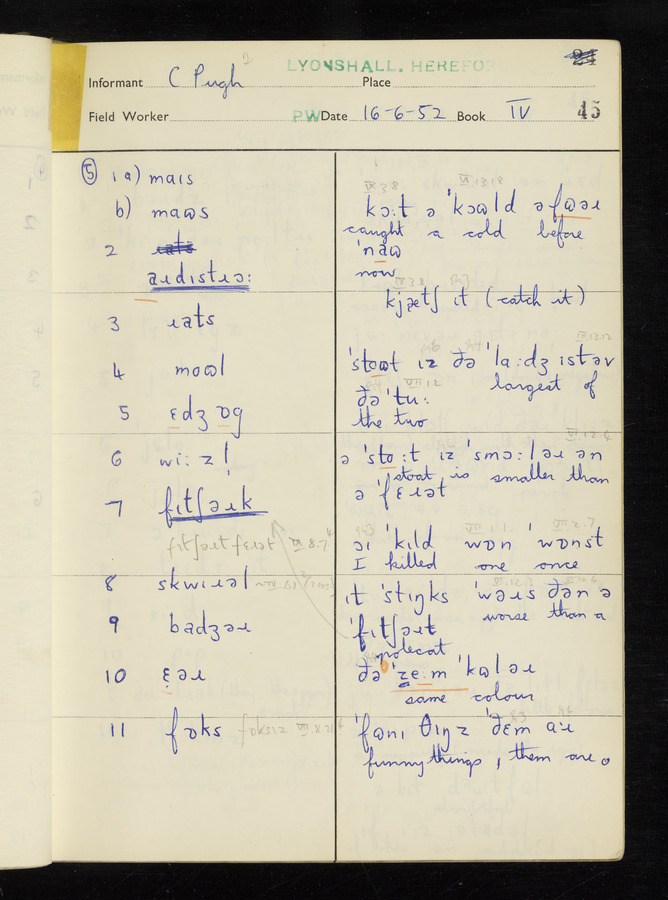 LYONSHALL. HEREFOR
24
Informant C Pugh Place
Field Worker PW Date 16-6-52 Book IV 45
⑤ 1a) maɪs
b) maɷs
2 ɹats
aɹdɪstɹɔ:
3 ɹats
4 moɷl
5 ɛdʒ ɒg
6 wi: z l
7 fɪtʃəɹk
fɪtʃəɹt fɛɹət VIII.8.7
8 skwɪɹəl
9 badʒəɹ
10 ɛəɹ
11 fɒks fɒksɪz
IV.3.8 VI.13.18
kɔ:t ə 'kɔɷld əfɷəɹ
caught a cold before
'naɷ
now
VI.3.8
kjætʃ ɪt (catch it)
'stoɷt ɪz ðə 'la:dʒ ɪstəv
largest of
ðə 'tu:
the two
ə 'sto:t ɪz 'smɔ:ləɹ ən
stoat is smaller than
ə 'fɛɹət
əɪ 'kɪld wɒn 'wɒnst
I killed one once
ɪt 'stɪŋks 'wəɹs ðən ə
worse than a
'fɪtʃəɹt
polecat
ðə 'ze:m 'kɷləɹ
same colour
'fɷnɪ θɪŋz 'ðɛm aɹ
funny things, them are.